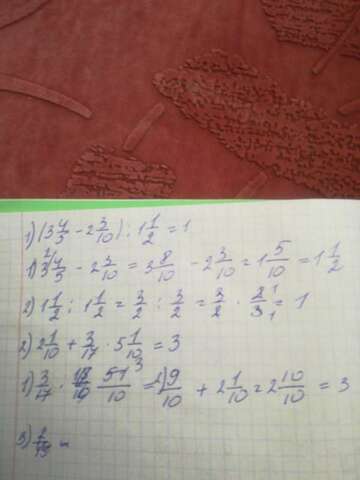 1) (3 4/5 - 2 3/10) : 1 1/2 = 1
1) 3 4/5 - 2 3/10 = 3 8/10 - 2 3/10 = 1 5/10 = 1 1/2
2) 1 1/2 : 1 1/2 = 3/2 : 3/2 = 3/2 · 2/3 = 1
2) 2 1/10 + 3/17 · 5 1/10 = 3
1) 3/17 · 51/10 = 2) 9/10 + 2 1/10 = 2 10/10 = 3
3)